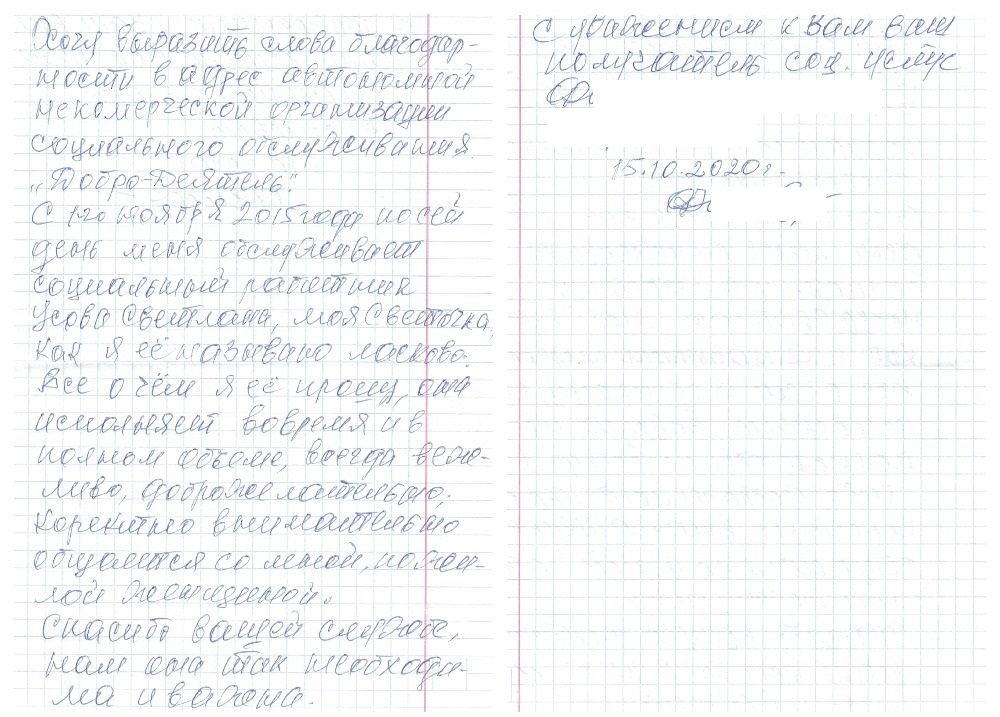 Хочу выразить слова благодар-
ности в адрес автономной
некомерческой организации
социального обслуживания
"Добро-Деятель".
С 1го ноября 2015 года по сей
день меня обслуживает
социальный работник
Усова Светлана, моя Светочка,
как я её называю ласково.
Все о чём я её прошу, она
исполняет вовремя и в
полном объеме, всегда веж-
ливо, доброжелательно,
коректно внимательно
общается со мной, пожи-
лой женщиной.
Спасибо вашей службе,
нам она так необходи-
ма и важна.
С уважением к Вам ваш
получатель соц. услуг
15.10.2020г.